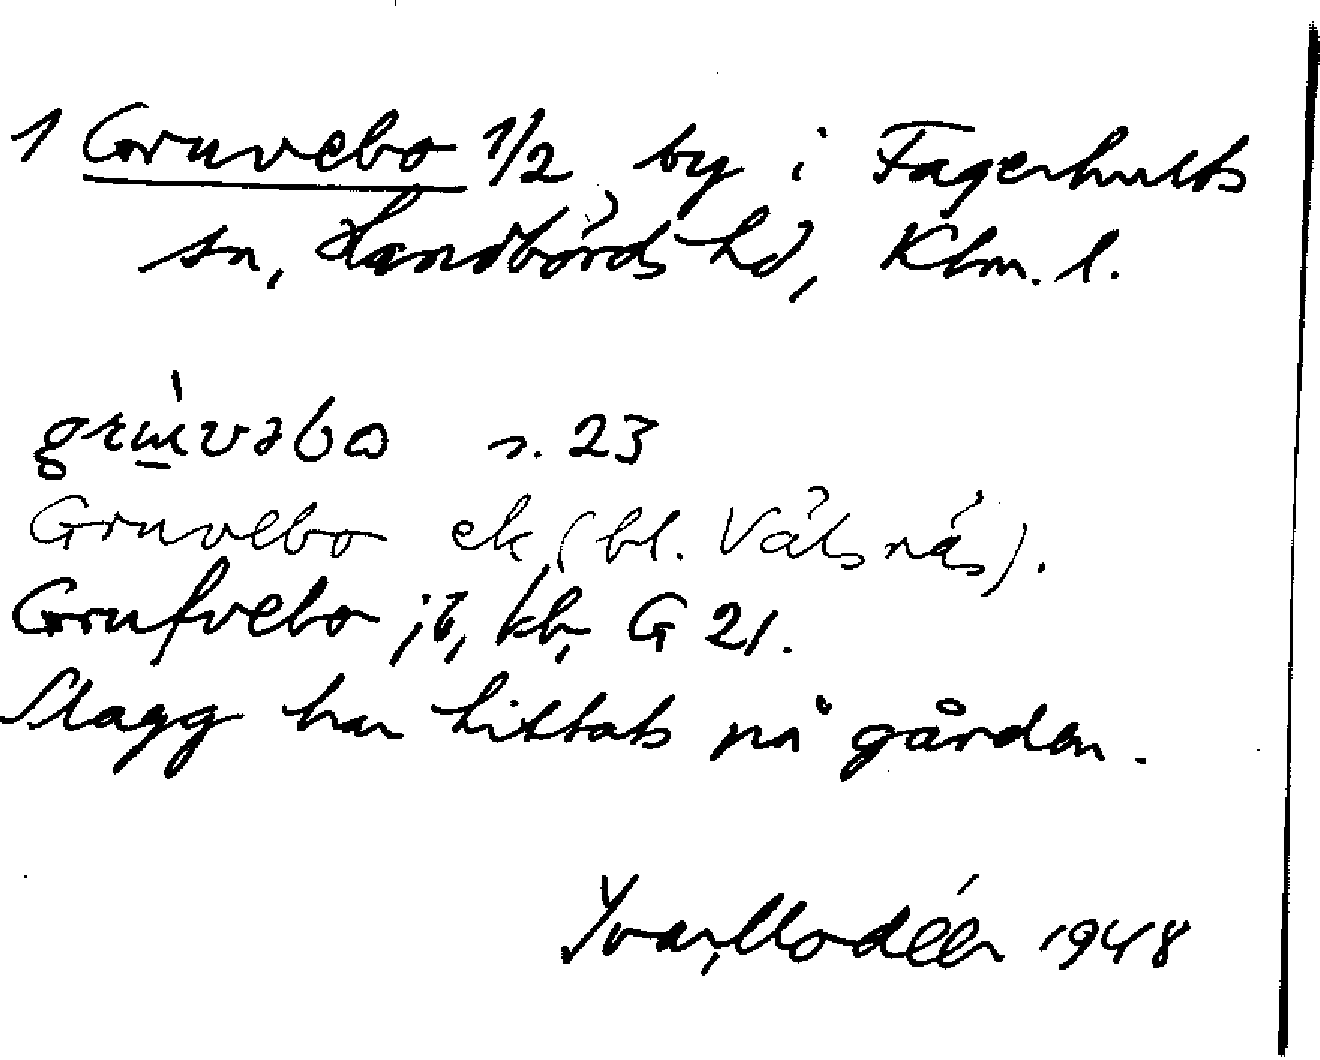 1 Gruvebo 1/2 by i Fagerhults
sn, Handbörds hd, Klm. l.
grɯ̀vəbo s. 23
Gruvebo ek (bl. Vätsnäs).
Grufvebo jb, kb, G 21.
Slagg har hittats på gården.
Ivar Modéer 1948